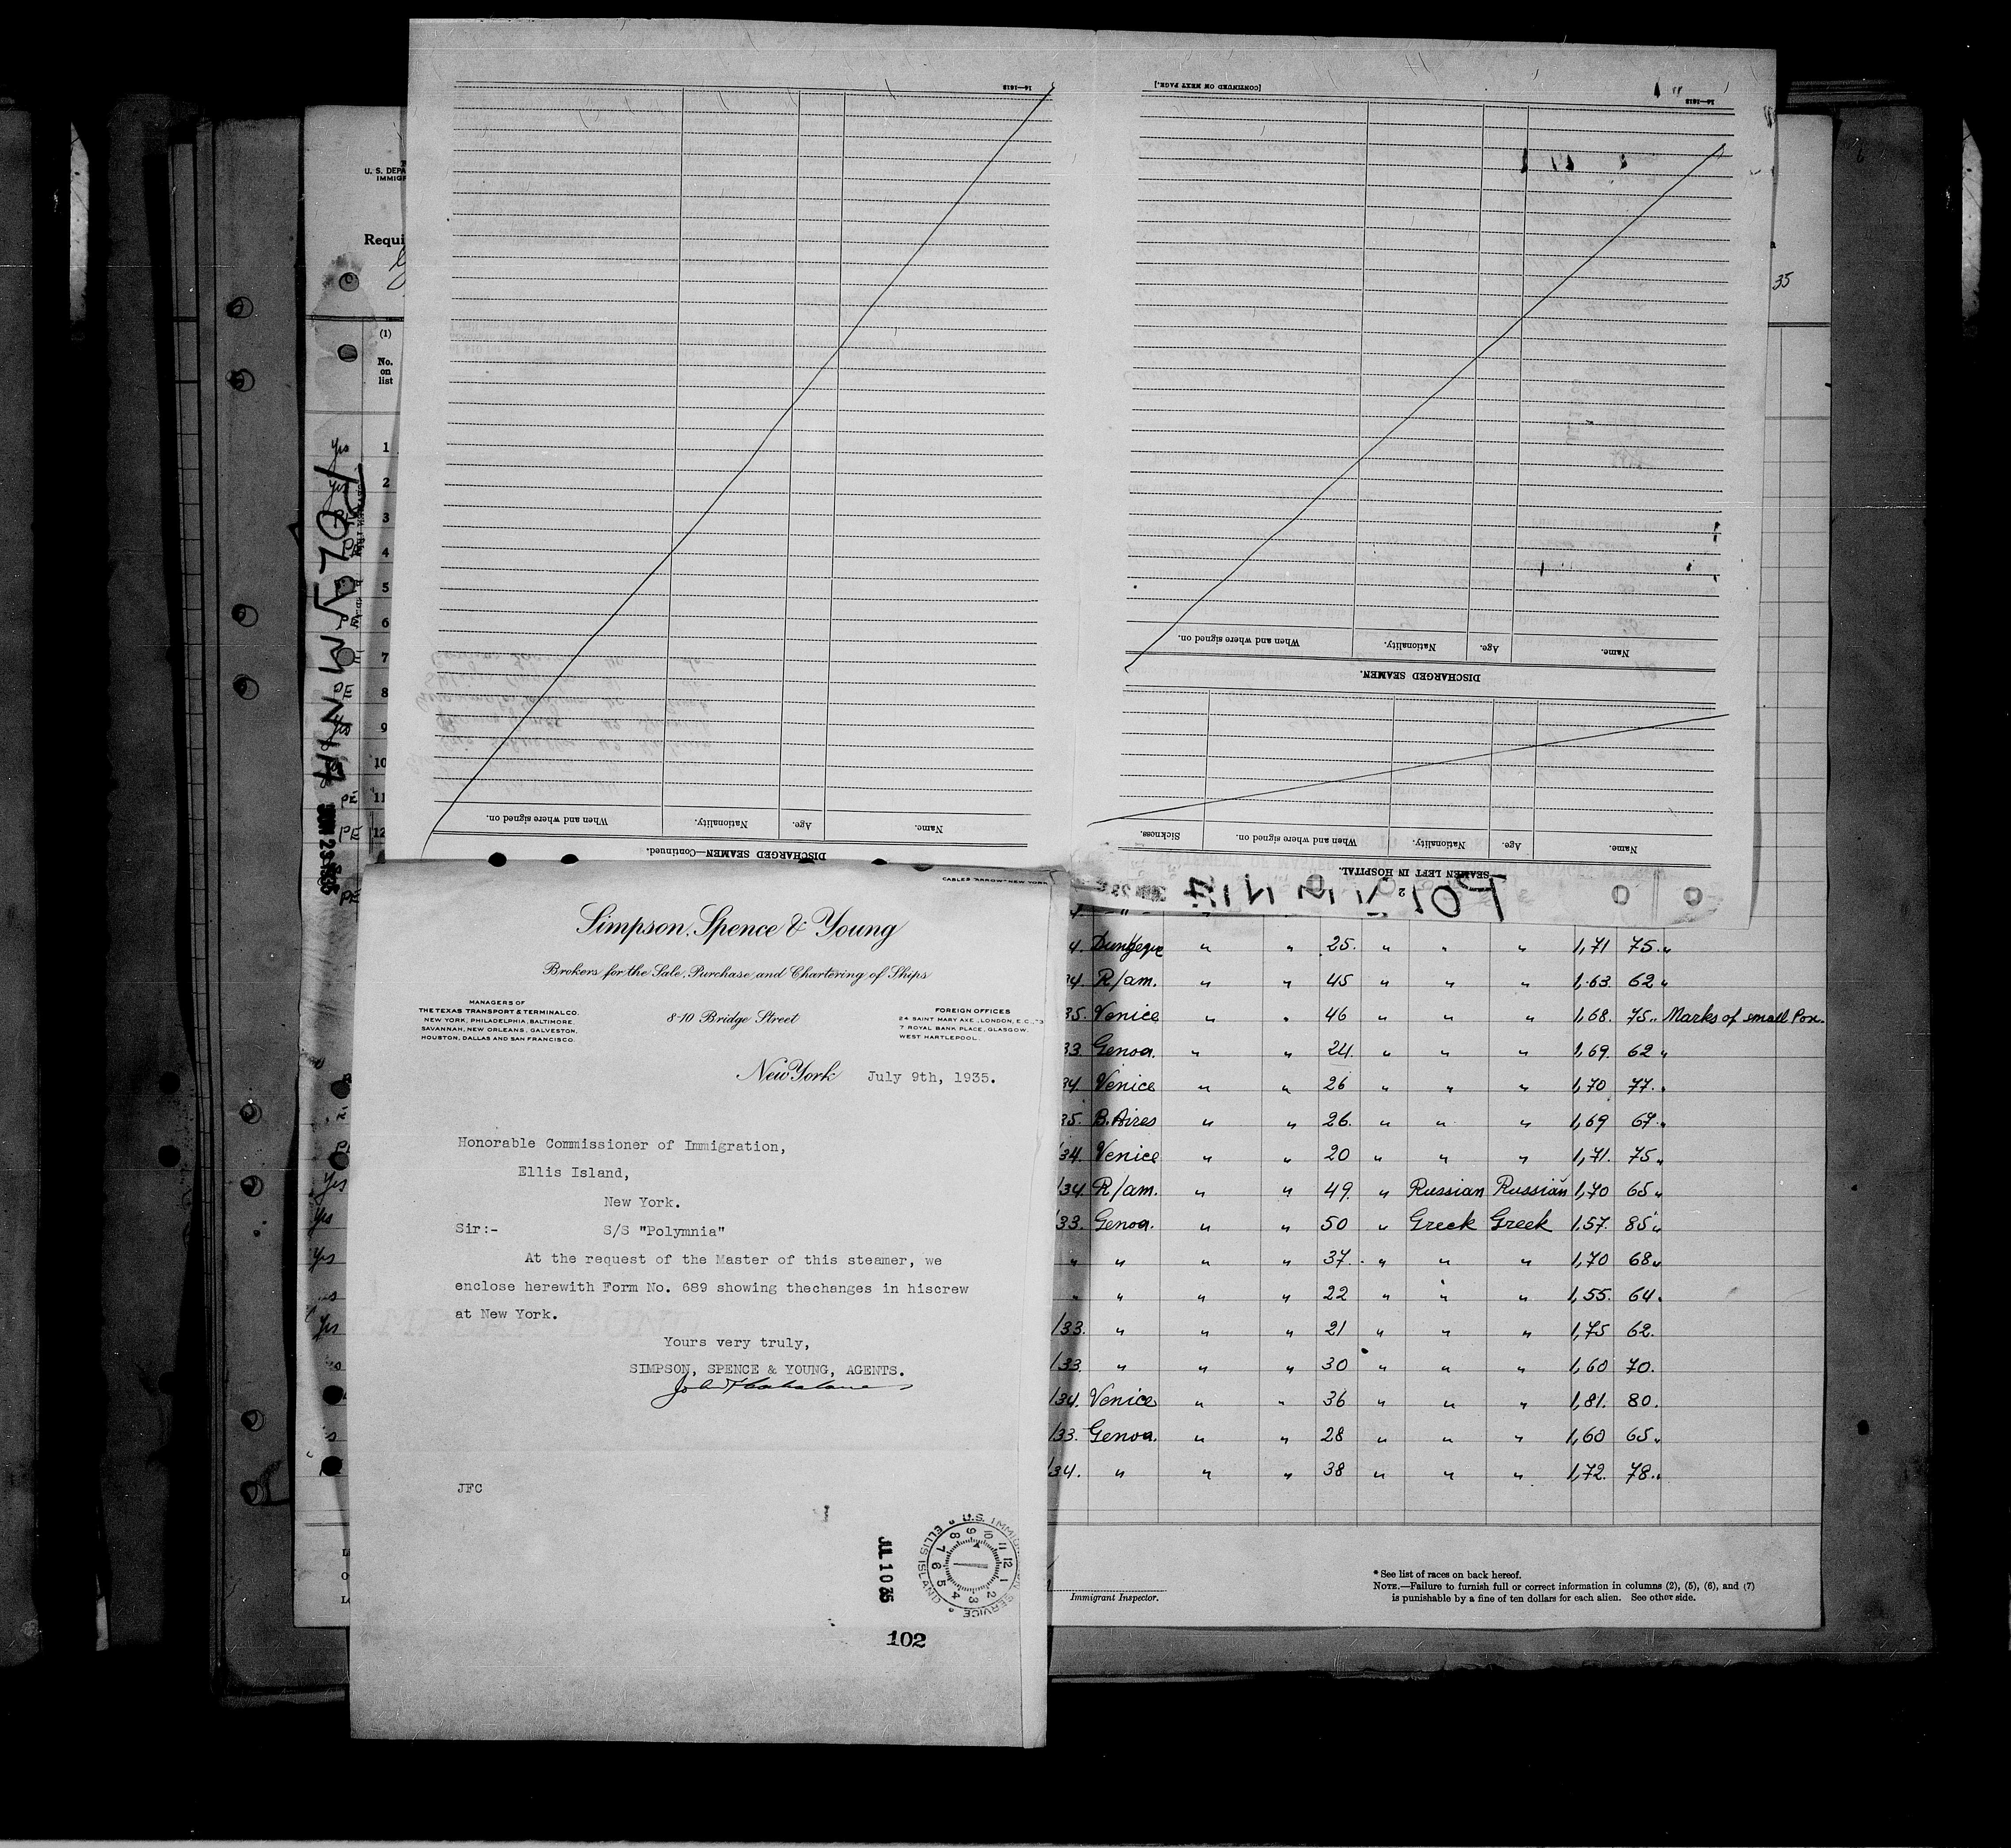 16—1612
[CONTINUED ON NEXT PAGE.]
16—1612
When and where signed on.
Nationality.
Age.
Name.
DISCHARGED SEAMEN.
Sickness.
When and where signed on.
Nationality.
Age.
Name.
SEAMEN LEFT IN HOSPITAL.
2
When and where signed on.
Nationality.
Age.
Name.
DISCHARGED SEAMEN—Continued.
POLYMNIA
U. S. DEPA
IMMIG
Requi
35
(1)
No.
on
list
Yes 1
yes 2
3
4
5
6
7
PE 8
yes 9
10
PE 11
PE 12
PE
POLYMNIA
JUN 23 1935
CABLES "ARROW" NEW YORK
Simpson, Spence & Young
Brokers for the Sale, Purchase and Chartering of Ships
MANAGERS OF
THE TEXAS TRANSPORT & TERMINAL CO.
NEW YORK, PHILADELPHIA, BALTIMORE,
SAVANNAH, NEW ORLEANS, GALVESTON,
HOUSTON, DALLAS AND SAN FRANCISCO.
8-10 Bridge Street
FOREIGN OFFICES
24 SAINT MARY AXE, LONDON, E.C., 3
7 ROYAL BANK PLACE, GLASGOW.
WEST HARTLEPOOL.
New York July 9th, 1935.
Honorable Commissioner of Immigration,
Ellis Island,
New York.
Sir:- S/S "Polymnia"
At the request of the Master of this steamer, we
enclose herewith Form No. 689 showing thechanges in hiscrew
at New York.
Yours very truly,
SIMPSON, SPENCE & YOUNG, AGENTS.
JFC
JUL 10 35
U.S. IMMIGRATION SERVICE • ELLIS ISLAND •
102
4. " " 25. " " " 1,71 75 "
34. R/am. " " 45 " " " 1,63. 62 "
35. Venice " " 46 " " " 1,68. 75 " Marks of small Pox.
33. Genoa. " " 24. " " " 1,69. 62 "
34. Venice " " 26 " " " 1,70 77. "
35. B. Aires " " 26. " " " 1,69 67 "
34. Venice " " 20 " " " 1,71. 75 "
/34. R/am. " " 49. " Russian Russian 1,70 65 "
/33. Genoa. " " 50 " Greek Greek 1,57. 85 "
" " " " 37. " " " 1,70 68 "
" " " " 22 " " " 1,55. 64.
/33. " " " 21 " " " 1,75 62.
/33. " " " 30 " " " 1,60 70.
/34. Venice " " 36 " " " 1,81. 80.
/33. Genoa. " " 28 " " " 1,60 65 "
/34. " " " 38 " " " 1,72. 78 "
Immigrant Inspector.
* See list of races on back hereof.
NOTE.—Failure to furnish full or correct information in columns (2), (5), (6), and (7)
is punishable by a fine of ten dollars for each alien. See other side.